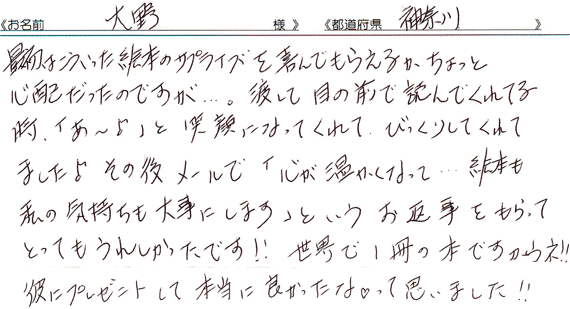 《お名前 大野 様 》 《都道府県 神奈川 》
最初はこういった絵本のサプライズを喜んでもらえるか、ちょっと
心配だったのですが…。渡して目の前で読んでくれてる
時、「あ～よ」と笑顔になってくれて、びっくりしてくれて
ましたよ その後メールで「心が温かくなって… 絵本も
私の気持ちも大事にします」という お返事をもらって
とってもうれしかったです!! 世界で1冊の本ですからネ!!
彼にプレゼントして本当に良かったな♡って思いました!!